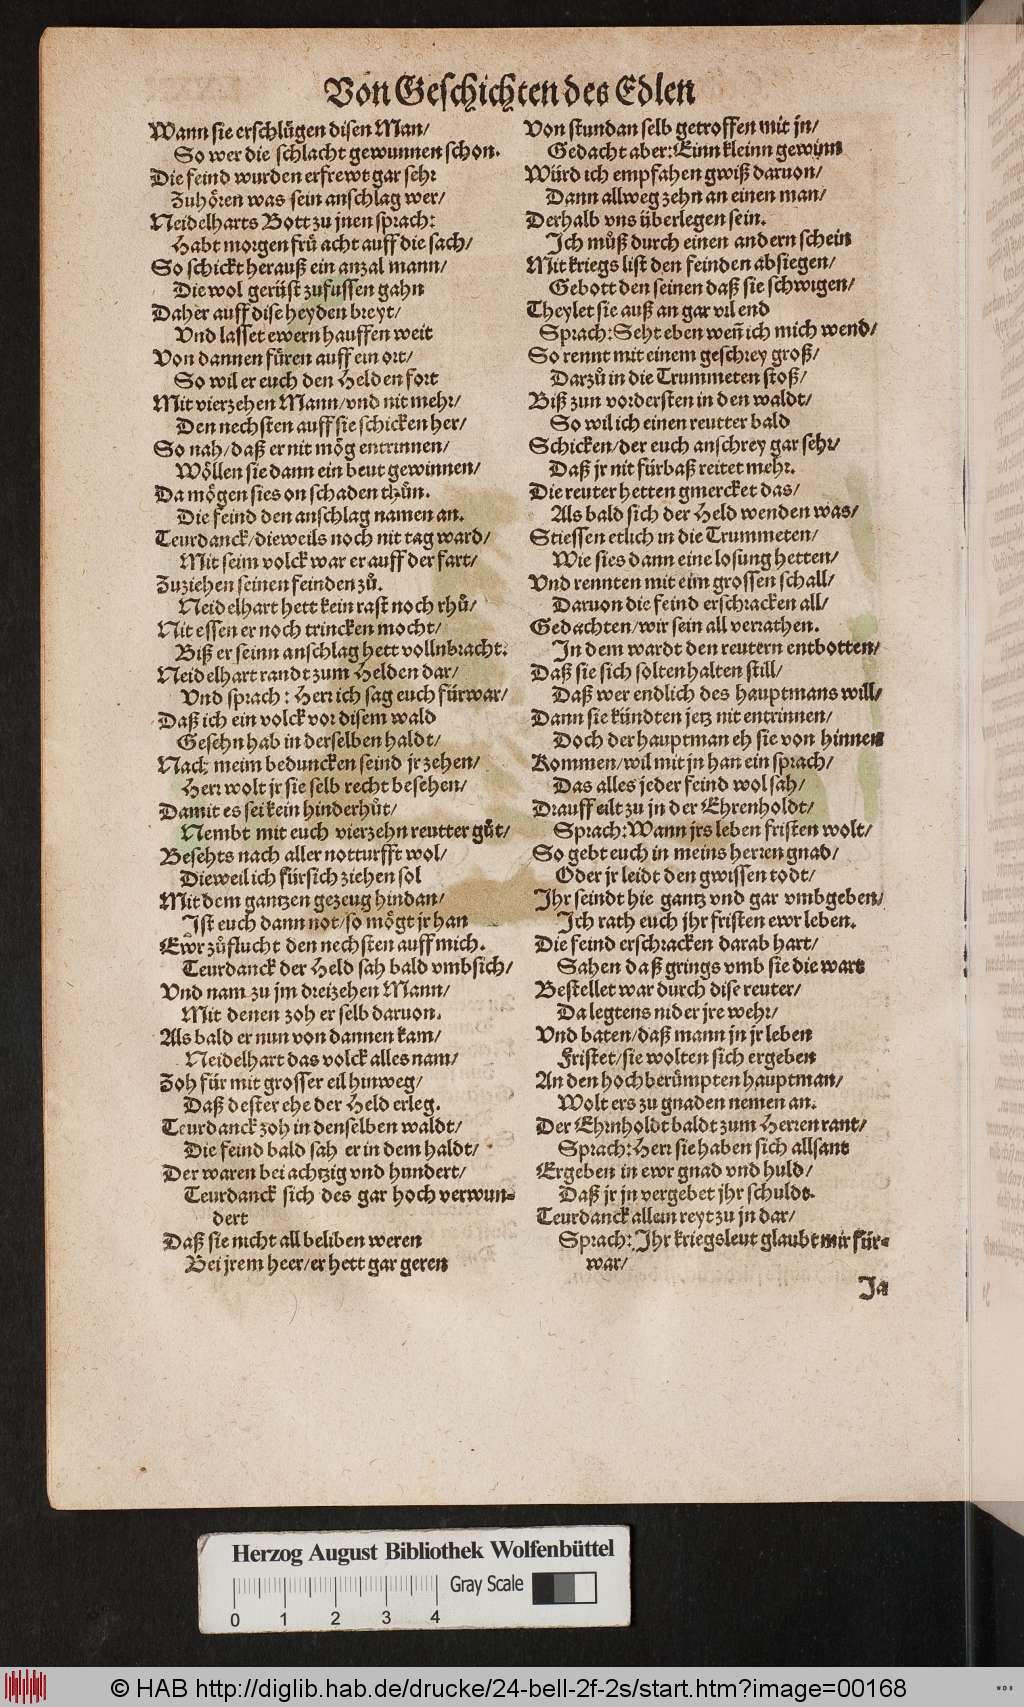 Von Geschichten des Edlen
Wann sie erschlůgen disen Man/
So wer die schlacht gewunnen schon.
Die feind wurden erfrewt gar sehr
Zuhören was sein anschlag wer/
Neidelharts Bott zu jnen sprach:
Habt morgen frů acht auff die sach/
So schickt herauß ein anzal mann/
Die wol gerüst zufussen gahn
Daher auff dise heyden breyt/
Vnd lasset ewern hauffen weit
Von dannen füren auff ein ort/
So wil er euch den Helden fort
Mit vierzehen Mann/vnd nit mehr/
Den nechsten auff sie schicken her/
So nah/daß er nit mög entrinnen/
Wöllen sie dann ein beut gewinnen/
Da mögen sies on schaden thůn.
Die feind den anschlag namen an.
Teurdanck/dieweils noch nit tag ward/
Mit seim volck war er auff der fart/
Zuziehen seinen feinden zů.
Neidelhart hett kein rast noch rhů/
Nit essen er noch trincken mocht/
Biß er seinn anschlag hett vollnbracht.
Neidelhart randt zum Helden dar/
Vnd sprach: Herr ich sag euch fürwar/
Daß ich ein volck vor disem wald
Gesehn hab in derselben haldt/
Nach meim beduncken seind jr zehen/
Herr wolt jr sie selb recht besehen/
Damit es sei kein hinderhůt/
Nembt mit euch vierzehn reutter gůt/
Besehts nach aller notturfft wol/
Dieweil ich fürsich ziehen sol
Mit dem gantzen gezeug hindan/
Ist euch dann not/so mögt jr han
Ewr zůflucht den nechsten auff mich.
Teurdanck der Held sah bald vmbsich/
Vnd nam zu jm dreizehen Mann/
Mit denen zoh er selb daruon.
Als bald er nun von dannen kam/
Neidelhart das volck alles nam/
Zoh für mit grosser eil hinweg/
Daß dester ehe der Held erleg.
Teurdanck zoh in denselben waldt/
Die feind bald sah er in dem haldt/
Der waren bei achtzig vnd hundert/
Teurdanck sich des gar hoch verwun-
dert
Daß sie nicht all beliben weren
Bei jrem heer/er hett gar geren
Von stundan selb getroffen mit jn/
Gedacht aber: Einn kleinn gewinn
Würd ich empfahen gwiß daruon/
Dann allweg zehn an einen man/
Derhalb vns überlegen sein.
Ich můß durch einen andern schein
Mit kriegs list den feinden absiegen/
Gebott den seinen daß sie schwigen/
Theylet sie auß an gar vil end
Sprach: Seht eben weñ ich mich wend/
So rennt mit einem geschrey groß/
Darzů in die Trummeten stoß/
Biß zun vordersten in den waldt/
So wil ich einen reutter bald
Schicken/der euch anschrey gar sehr/
Daß jr nit fürbaß reitet mehr.
Die reuter hetten gmercket das/
Als bald sich der Held wenden was/
Stiessen etlich in die Trummeten/
Wie sies dann eine losung hetten/
Vnd rennten mit eim grossen schall/
Daruon die feind erschracken all/
Gedachten/wir sein all verrathen.
In dem wardt den reutern entbotten/
Daß sie sich solten halten still/
Daß wer endlich des hauptmans will/
Dann sie kündten jetz nit entrinnen/
Doch der hauptman eh sie von hinnen
Kommen/wil mit jn han ein sprach/
Das alles jeder feind wol sah/
Drauff eilt zu jn der Ehrenholdt/
Sprach: Wann jrs leben fristen wolt/
So gebt euch in meins herren gnad/
Oder jr leidt den gwissen todt/
Ihr seindt hie gantz vnd gar vmbgeben/
Ich rath euch jhr fristen ewr leben.
Die feind erschracken darab hart/
Sahen daß grings vmb sie die wart
Bestellet war durch dise reuter/
Da legtens nider jre wehr/
Vnd baten/daß mann jn jr leben
Fristet/sie wolten sich ergeben
An den hochberümpten hauptman/
Wolt ers zu gnaden nemen an.
Der Ehrnholdt baldt zum Herren rant/
Sprach: Herr sie haben sich allsant
Ergeben in ewr gnad vnd huld/
Daß jr jn vergebet jhr schuldt.
Teurdanck allein reyt zu jn dar/
Sprach: Ihr kriegsleut glaubt mir für-
war/
Ja
Herzog August Bibliothek Wolfenbüttel
Gray Scale
0 1 2 3 4
© HAB http://diglib.hab.de/drucke/24-bell-2f-2s/start.htm?image=00168